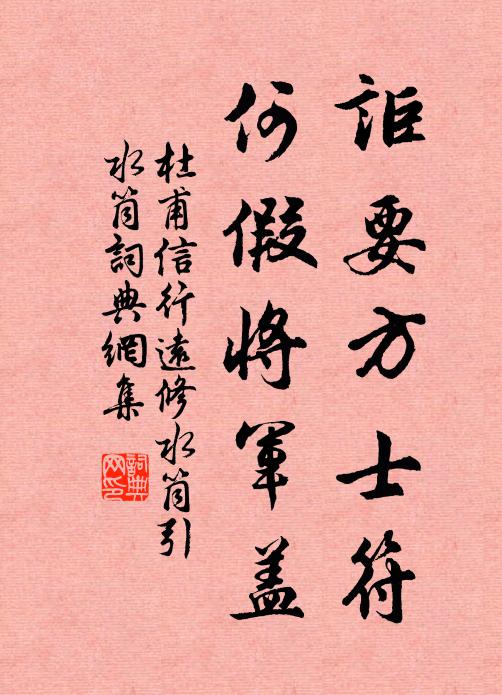 詎要方士符
何假將軍蓋
杜甫信行遠修水筒引
水筒詞典網集
詞典
网印